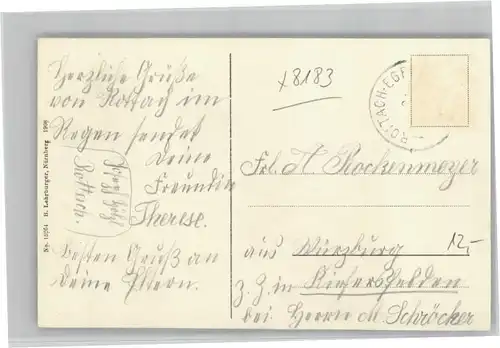 Herzliche Grüße
von Rottach im
Regen sendet
Deine
Freundin
Therese.
besten Gruß an
Deine Eltern.
Rottach.
No. 10264 H. Lehrburger, Nürnberg 1908
x 8183
ROTTACH-EG
Frl. A. Rockenmeyer
aus Würzburg
12,-
z. Z. in Kiefersfelden
bei Herrn M. Schröcker